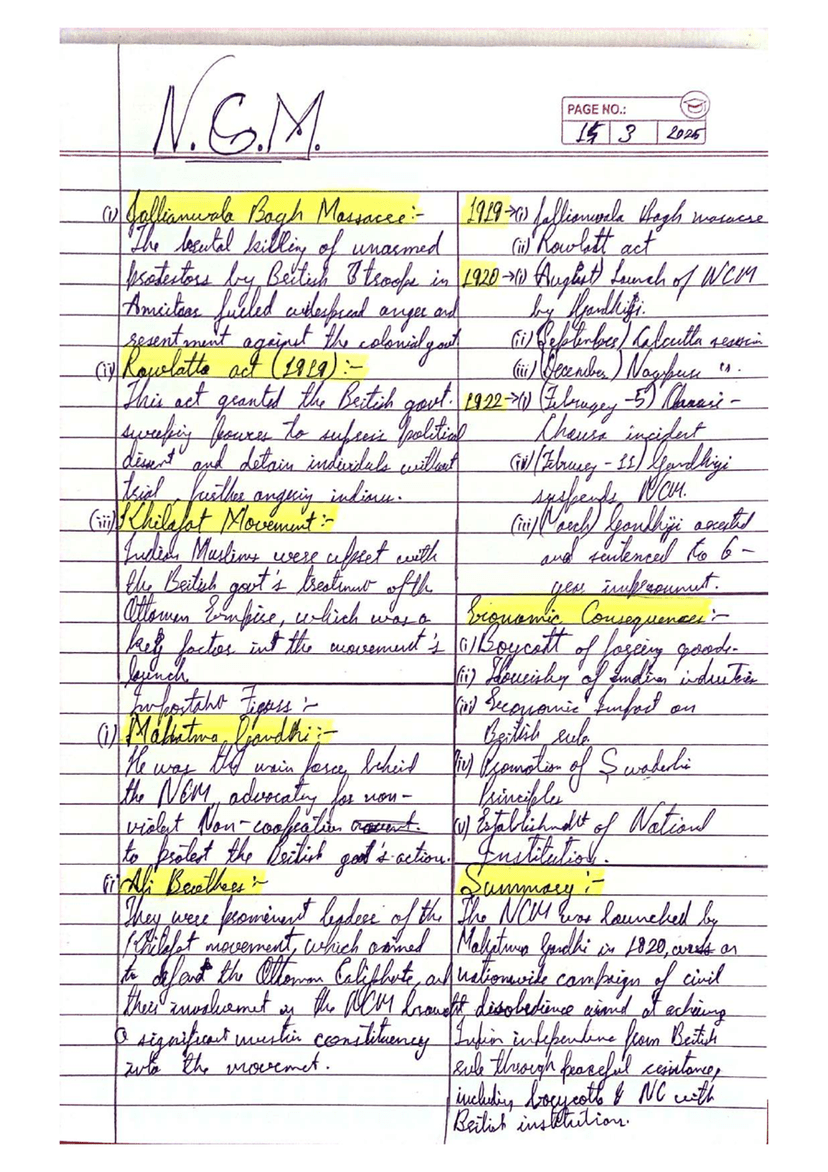 N.C.M.
PAGE NO.:
15 3 2025
(i) Jallianwala Bagh Massacre:-
The brutal killing of unarmed
protestors by British troops in
Amritsar fueled widespread anger and
resentment against the colonial govt
(ii) Rowlatto act (1919):-
This act granted the British govt.
sweeping powers to supress political
dissent and detain individals without
trial, further angering indians.
(iii) Khilafat Movement:-
Indian Muslims were upset with
the British govt's treatment of the
Ottoman Empire, which was a
key factor int the movement's
launch
Important Figures:-
(i) Mahatma Gandhi:-
He was the main force behind
the NCM, advocating for non-
violent Non-cooperation
to protest the British govt's action.
(ii) Ali Brothers:-
They were prominent leaders of the
Khilafat movement, which aimed
to defend the Ottoman Caliphate, and
their involvement in the NCM brought
a significant muslim constituency
into the movement.
1919→(i) Jallianwala Bagh masacre
(ii) Rowlatt act
1920→(i) (August) Launch of NCM
by Gandhiji.
(ii) (September) Calcutta session
(iii) (December) Nagpur "
1922→(i) (February -5) Chauri-
Chaura incident
(ii) (February - 11) Gandhiji
suspends NCM.
(iii) (March) Gandhiji arrested
and sentenced to 6-
year
Economic Consequences:-
(i) Boycott of foreign goods-
(ii) of indian industries
(iii) Economic Impact on
British rule
(iv) Promotion of Swadeshi
Principles
(v) Establishment of National
Institution.
Summary:-
The NCM was launched by
Mahatma Gandhi in 1920, as
nationwide campaign of civil
disobedience aimed at achieving
Indian independence from British
rule through peaceful resistance,
including boycott & NC with
British institution.